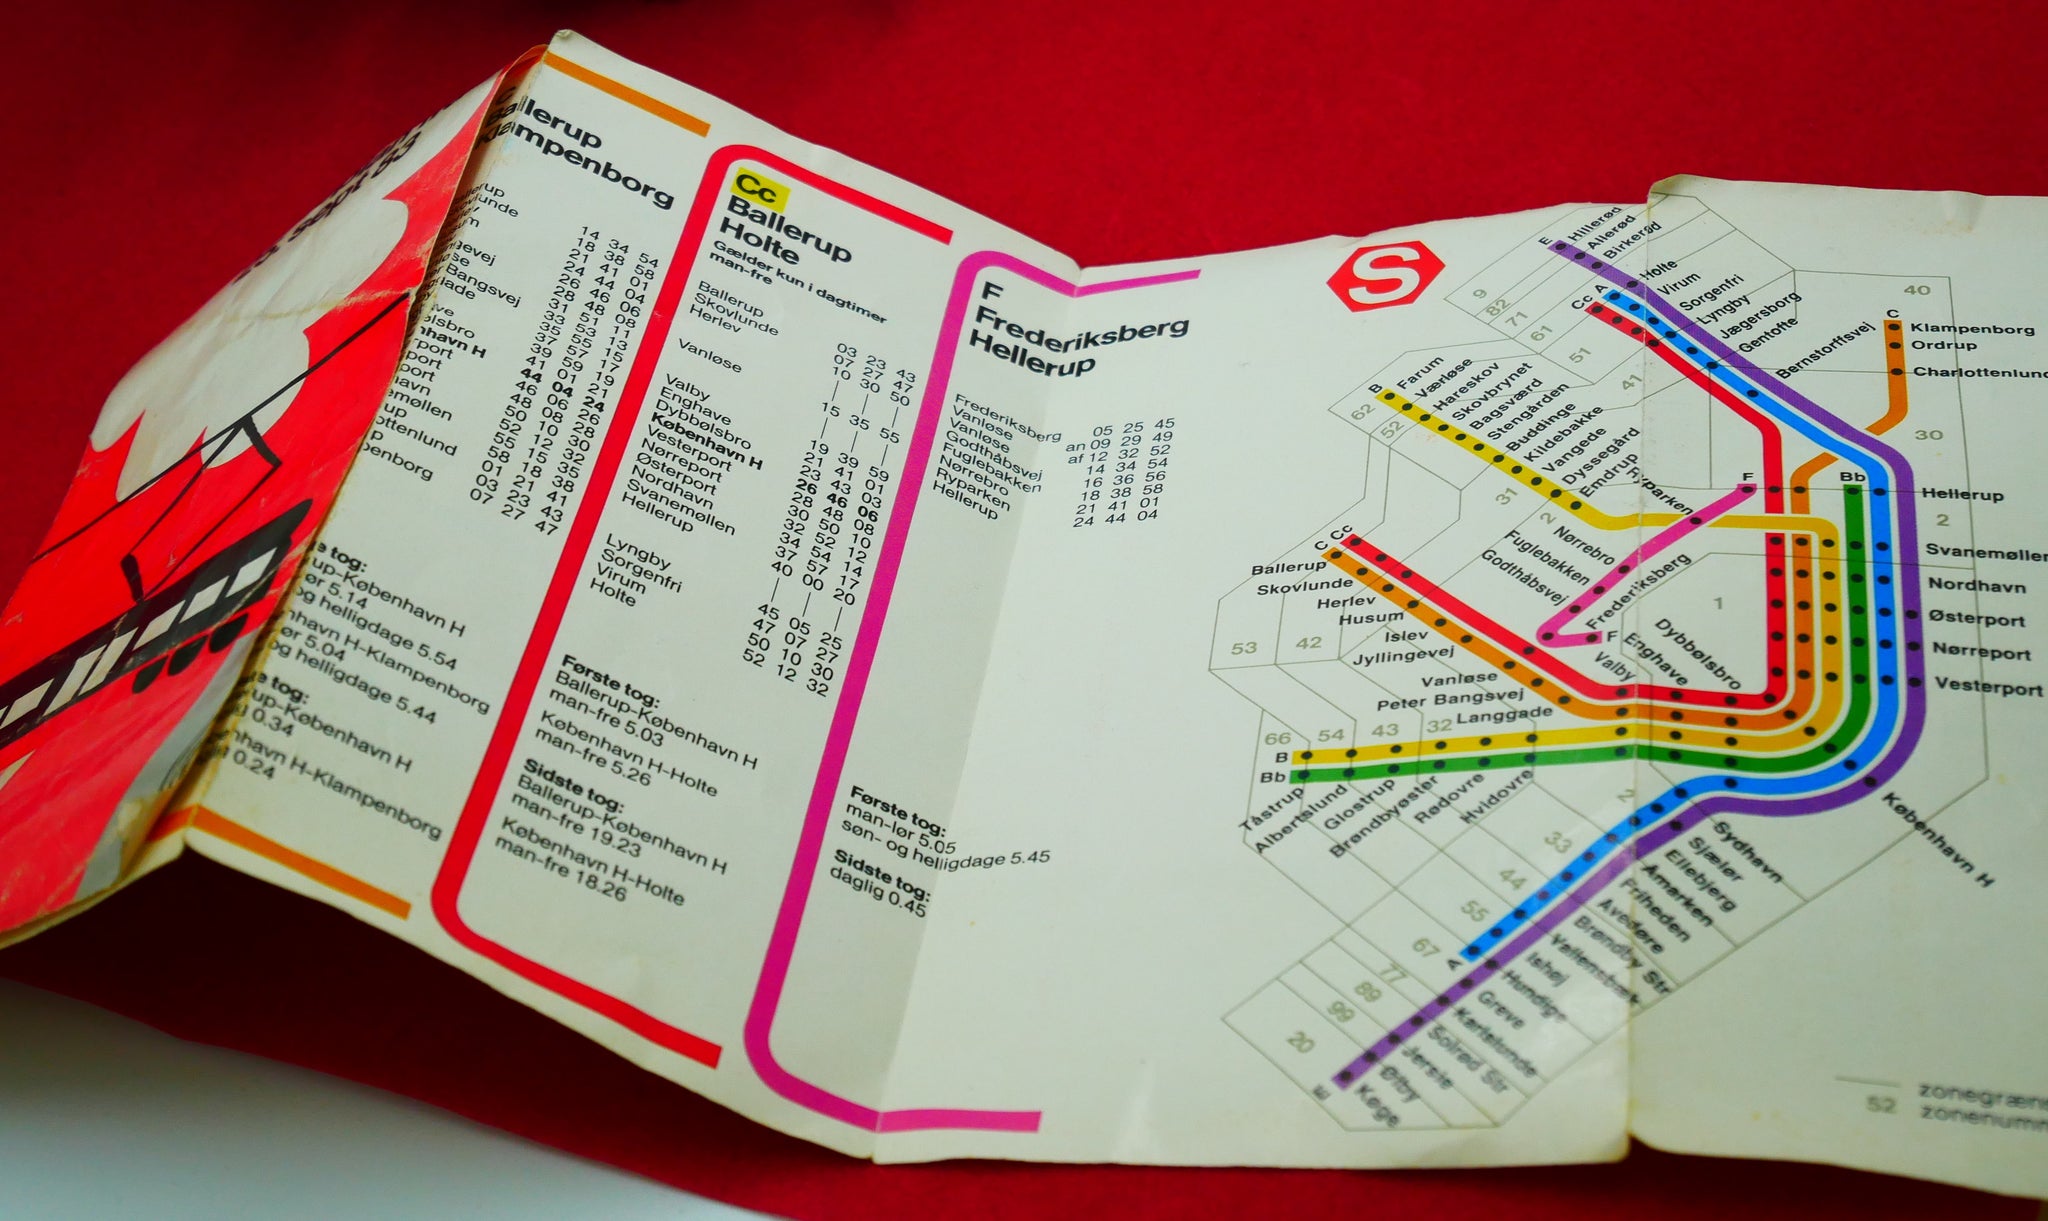 sept 83
C
Ballerup
Klampenborg
14 34 54
18 38 58
21 41 01
24 44 04
26 46 06
28 48 08
31 51 11
33 53 13
35 55 15
37 57 17
39 59 19
41 01 21
44 04 24
46 06 26
48 08 28
50 10 30
52 12 32
55 15 35
58 18 38
01 21 41
03 23 43
07 27 47
ør 5.14
og helligdage 5.54
ør 5.04
og helligdage 5.44
0.34
0.24
Cc
Ballerup
Holte
Gælder kun i dagtimer
man-fre
Ballerup 03 23 43
Skovlunde 07 27 47
Herlev 10 30 50
— — —
Vanløse 15 35 55
— — —
Valby 19 39 59
Enghave 21 41 01
Dybbølsbro 23 43 03
København H 26 46 06
Vesterport 28 48 08
Nørreport 30 50 10
Østerport 32 52 12
Nordhavn 34 54 14
Svanemøllen 37 57 17
Hellerup 40 00 20
— — —
Lyngby 45 05 25
Sorgenfri 47 07 27
Virum 50 10 30
Holte 52 12 32
Første tog:
Ballerup-København H
man-fre 5.03
København H-Holte
man-fre 5.26
Sidste tog:
Ballerup-København H
man-fre 19.23
København H-Holte
man-fre 18.26
F
Frederiksberg
Hellerup
Frederiksberg 05 25 45
Vanløse an 09 29 49
Vanløse af 12 32 52
Godthåbsvej 14 34 54
Fuglebakken 16 36 56
Nørrebro 18 38 58
Ryparken 21 41 01
Hellerup 24 44 04
Første tog:
man-lør 5.05
søn- og helligdage 5.45
Sidste tog:
daglig 0.45
S
E
Hillerød
Allerød
Birkerød
Holte
Virum
Sorgenfri
Lyngby
Jægersborg
Gentofte
Bernstorffsvej
Cc A
9
82
71
61
51
41
40
30
C
Klampenborg
Ordrup
Charlottenlund
B
Farum
Værløse
Hareskov
Skovbrynet
Bagsværd
Stengården
Buddinge
Kildebakke
Vangede
Dyssegård
Emdrup
Ryparken
62
52
31
2
F
Bb
Hellerup
2
Svanemøllen
Nordhavn
Østerport
Nørreport
Vesterport
Nørrebro
Fuglebakken
Godthåbsvej
Frederiksberg
F
1
C Cc
Ballerup
Skovlunde
Herlev
Husum
Islev
Jyllingevej
Vanløse
Peter Bangsvej
Langgade
Valby
Enghave
Dybbølsbro
53
42
66
54
43
32
B
Bb
Tåstrup
Albertslund
Glostrup
Brøndbyøster
Rødovre
Hvidovre
København H
Sydhavn
Sjælør
Ellebjerg
Åmarken
Friheden
Avedøre
Brøndby Str
Vallensbæk
Ishøj
Hundige
Greve
Karlslunde
Solrød Str
Jersie
Ølby
Køge
2
33
44
55
67
77
89
99
20
A
E
52